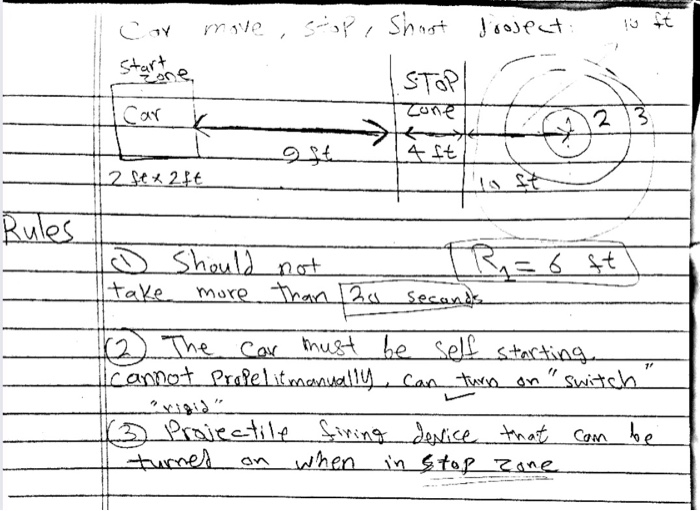 Car move, stop, Shoot Project: 10 ft
start zone
STOP zone
Car
1 2 3
9 ft
4 ft
10 ft
2 ft x 2ft
Rules
① Should not
R₁ = 6 ft
take more than 20 seconds
② The car must be self starting.
cannot Propel it manually. can turn on "switch"
"rigid"
③ Projectile firing device that can be
turned on when in stop zone